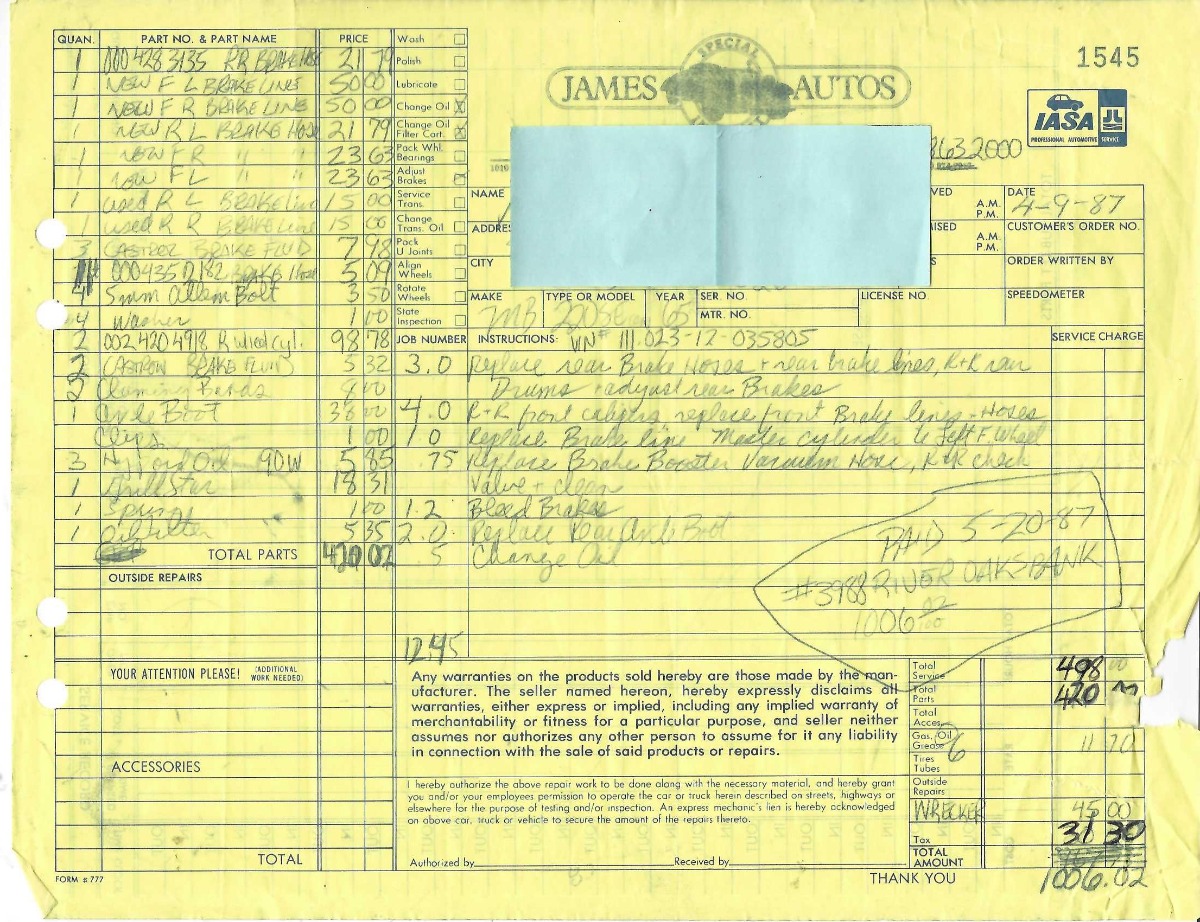 1545
SPECIAL
JAMES AUTOS
IASA
PROFESSIONAL AUTOMOTIVE SERVICE
8632000
QUAN. PART NO. & PART NAME PRICE
1 000 428 3135 RR BRAKE HOSE 21 79
1 NEW F L BRAKE LINE 50 00
1 NEW F R BRAKE LINE 50 00
1 NEW R L BRAKE HOSE 21 79
1 NEW F R " " 23 63
1 NEW F L " " 23 63
1 used R L BRAKE Line 15 00
1 used R R BRAKE Line 15 00
3 CASTROL BRAKE FLUID 7 98
000 435 2182 BRAKE HOSE 5 09
4 5mm Allen Bolt 3 50
4 Washer 1 00
2 002 420 4918 R wheel cyl. 98 78
2 CASTROL BRAKE FLUID 5 32
2 Clamming Bands 8 00
1 Axle Boot 38 00
Clips 1 00
3 Hypoid Oil 90W 5 85
1 18 31
1 1 00
1 Oil filter 5 35
TOTAL PARTS 420 02
OUTSIDE REPAIRS
YOUR ATTENTION PLEASE! (ADDITIONAL WORK NEEDED)
ACCESSORIES
TOTAL
FORM # 777
Wash
Polish
Lubricate
Change Oil X
Change Oil Filter Cart. X
Pack Whl. Bearings
Adjust Brakes
Service Trans.
Change Trans. Oil
Pack U Joints
Align Wheels
Rotate Wheels
State Inspection
NAME
VED A.M. P.M.
DATE 4-9-87
ADDRE
ISED A.M. P.M.
CUSTOMER'S ORDER NO.
CITY
S
ORDER WRITTEN BY
MAKE MB TYPE OR MODEL 220SE YEAR 65 SER. NO. LICENSE NO. SPEEDOMETER
MTR. NO.
JOB NUMBER INSTRUCTIONS: VN# 111.023-12-035805 SERVICE CHARGE
3.0 Replace rear Brake Hoses + rear brake lines, R+R rear
Drums + adjust rear Brakes
4.0 R+R front calipers replace front Brake lines + Hoses
1.0 Replace Brake line Master cylinder to Left F. Wheel
.75 Replace Brake Booster Vacuum Hose, R+R check
Valve + clean
1.2 Bleed Brakes
2.0 Replace Rear Axle Boot
.5 Change Oil
PAID 5-20-87
#3988 RIVER OAKS BANK
1006 02/100
12.45
Any warranties on the products sold hereby are those made by the man-
ufacturer. The seller named hereon, hereby expressly disclaims all
warranties, either express or implied, including any implied warranty of
merchantability or fitness for a particular purpose, and seller neither
assumes nor authorizes any other person to assume for it any liability
in connection with the sale of said products or repairs.
I hereby authorize the above repair work to be done along with the necessary material, and hereby grant
you and/or your employees permission to operate the car or truck herein described on streets, highways or
elsewhere for the purpose of testing and/or inspection. An express mechanic's lien is hereby acknowledged
on above car, truck or vehicle to secure the amount of the repairs thereto.
Authorized by Received by
Total Service 498 00
Total Parts 420
Total Acces.
Gas, Oil Grease 6 11 70
Tires Tubes
Outside Repairs
WRECKER 45 00
Tax 31 30
TOTAL AMOUNT 1006.02
THANK YOU